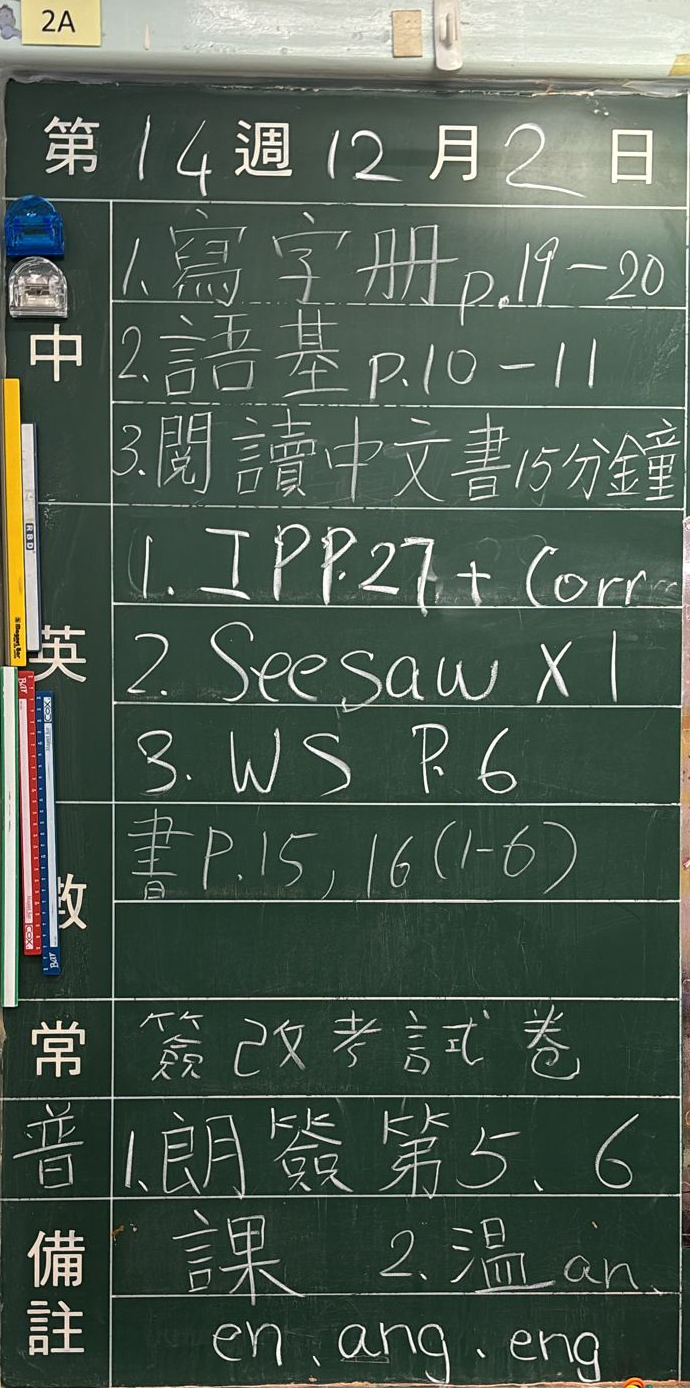 2A
第14週12月2日
中
1.寫字册p.19-20
2.語基p.10-11
3.閱讀中文書15分鐘
英
1. IP P.27 + Corr
2. Seesaw X 1
3. WS P.6
數
書P.15, 16(1-6)
常
簽改考試卷
普
1.朗簽第5、6
備註
課 2.溫an、
en、ang、eng